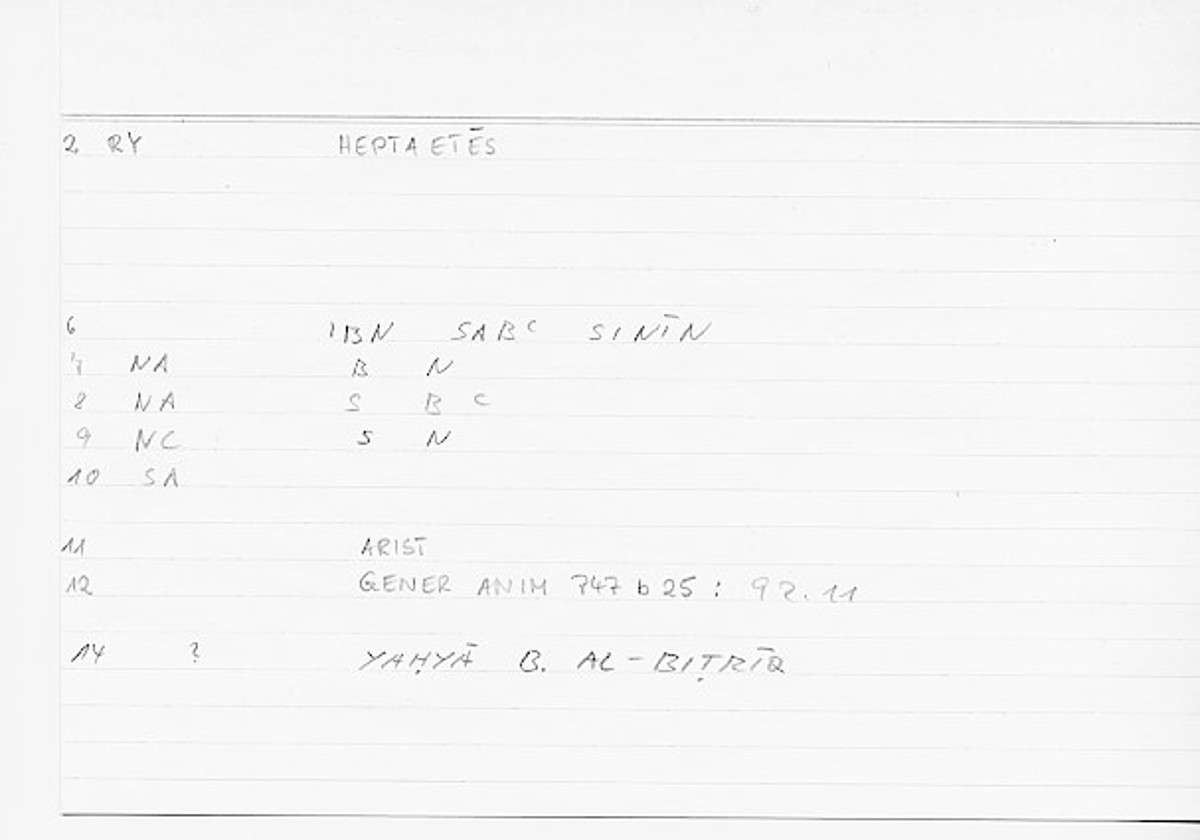 2 RY HEPTAETĒS
6 'IBN SABC SINĪN
7 NA B N
8 NA S B C
9 NC S N
10 SA
11 ARIST
12 GENER ANIM 747 b 25 : 92.11
14 ? YAḤYĀ B. AL-BIṬRĪQ